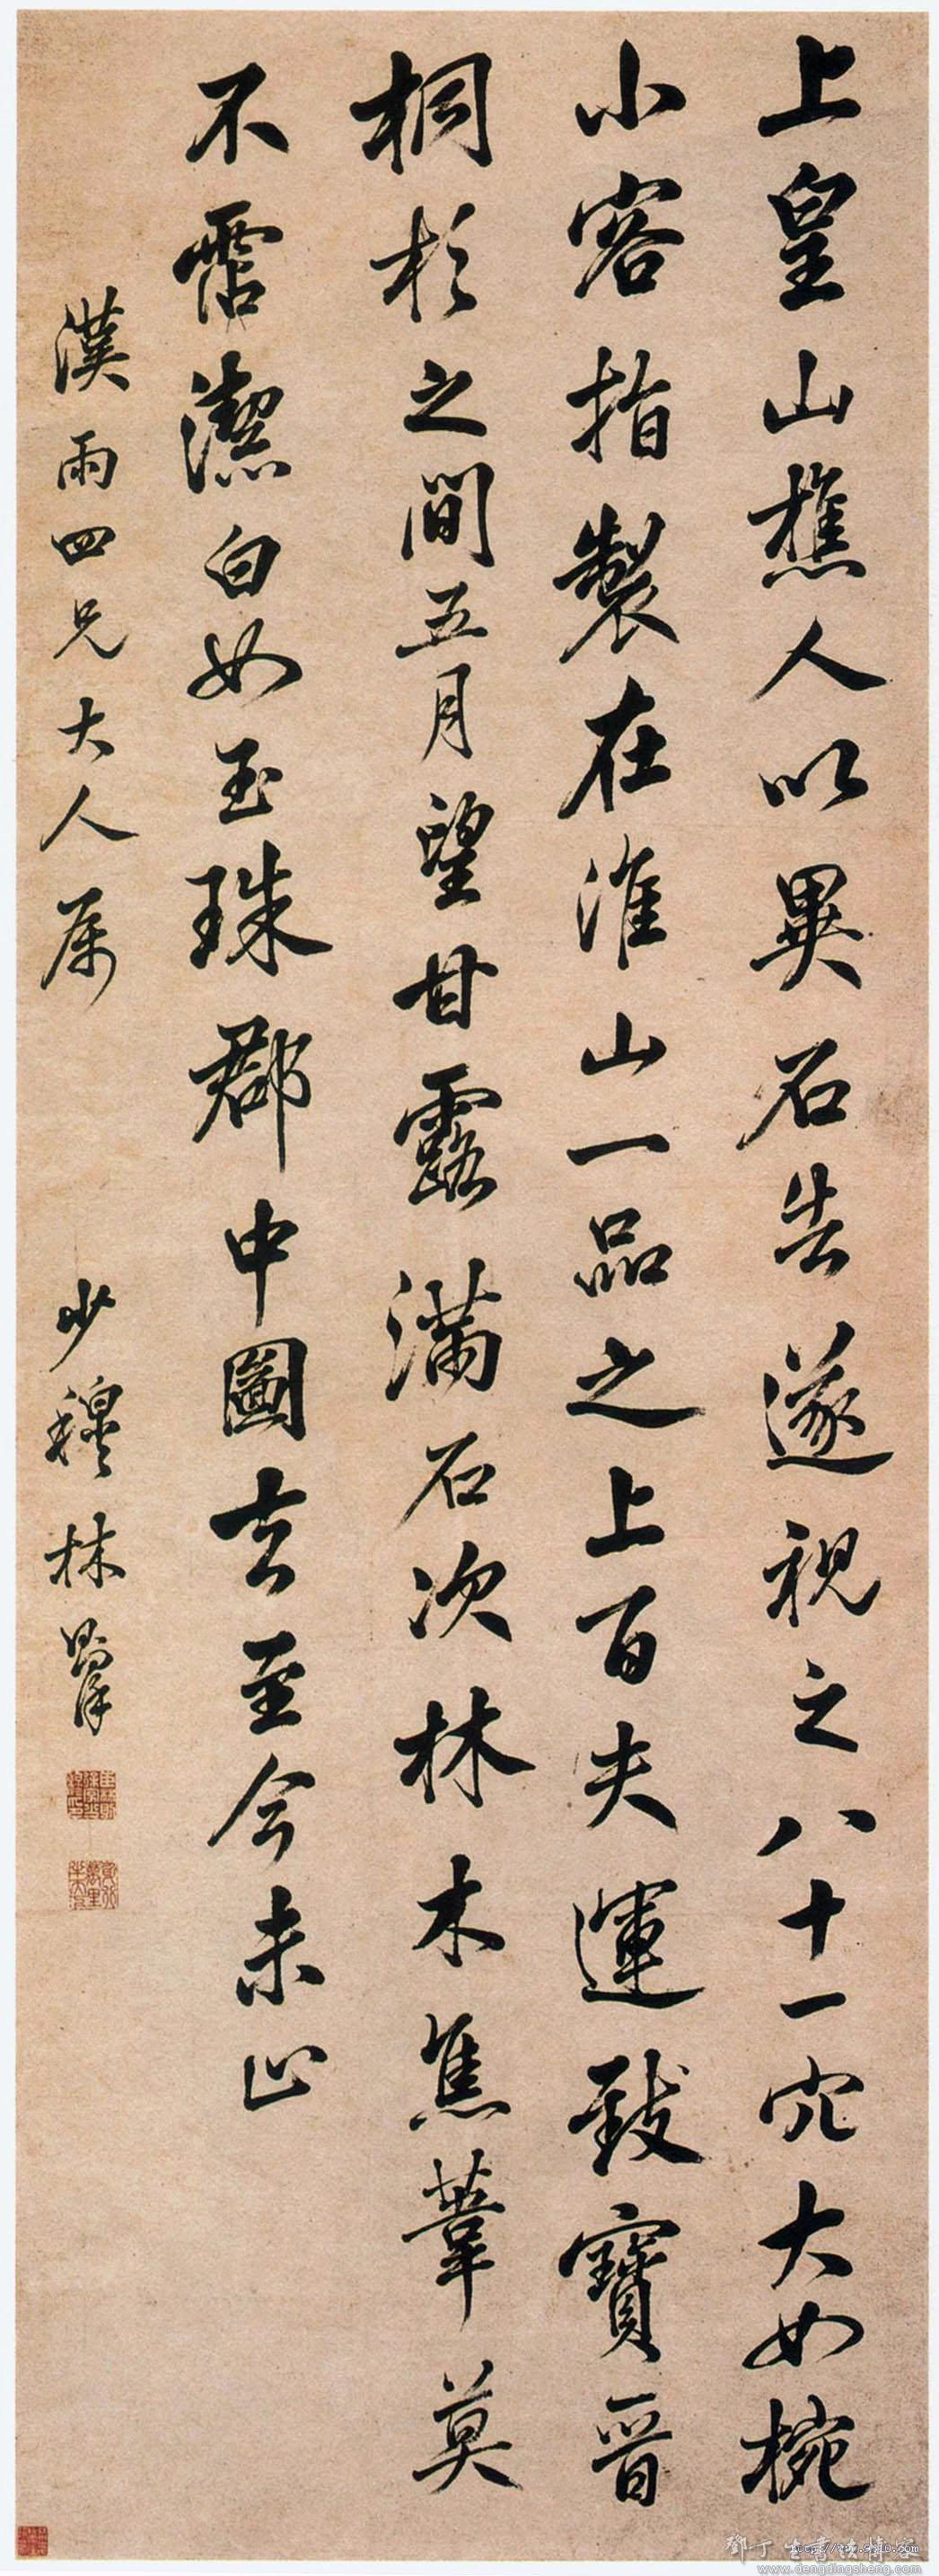 上皇山樵人以異石告遂視之八十一穴大如椀
小容指製在淮山一品之上百夫運致寶晉
桐杉之間五月望甘露滿石次林木焦葦莫
不霑潔白如玉珠郡中圖去至今未止
漢雨四兄大人属
少穆林則徐
鄧丁生書法博客
www.dengdingsheng.com